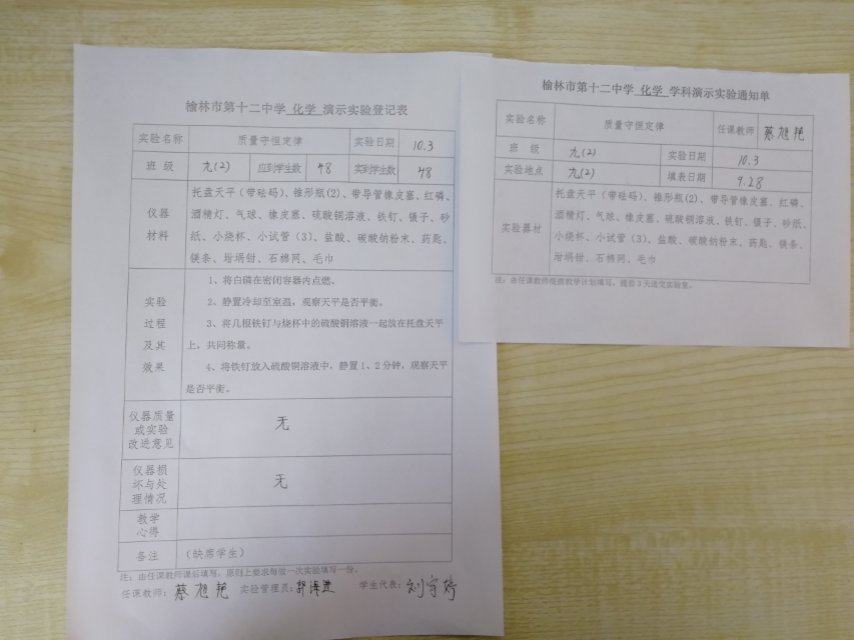 榆林市第十二中学 化学 演示实验登记表
实验名称 质量守恒定律 实验日期 10.3
班 级 九(2) 应到学生数 48 实到学生数 48
仪器
材料
托盘天平（带砝码）、锥形瓶(2)、带导管橡皮塞、红磷、
酒精灯、气球、橡皮塞、硫酸铜溶液、铁钉、镊子、砂
纸、小烧杯、小试管（3）、盐酸、碳酸钠粉末、药匙、
镁条、坩埚钳、石棉网、毛巾
实验
过程
及其
效果
1、将白磷在密闭容器内点燃。
2、静置冷却至室温，观察天平是否平衡。
3、将几根铁钉与烧杯中的硫酸铜溶液一起放在托盘天平
上，共同称量。
4、将铁钉放入硫酸铜溶液中，静置1、2分钟，观察天平
是否平衡。
仪器质量
或实验
改进意见
无
仪器损
坏与处
理情况
无
教学
心得
备注 （缺席学生）
注：由任课教师课后填写，原则上要求每做一次实验填写一份。
任课教师：蔡旭艳 实验管理员： 学生代表：刘宇婷
榆林市第十二中学 化学 学科演示实验通知单
实验名称 质量守恒定律 任课教师 蔡旭艳
班 级 九(2) 实验日期 10.3
实验地点 九(2) 填表日期 9.28
实验器材
托盘天平（带砝码）、锥形瓶(2)、带导管橡皮塞、红磷、
酒精灯、气球、橡皮塞、硫酸铜溶液、铁钉、镊子、砂纸、
小烧杯、小试管（3）、盐酸、碳酸钠粉末、药匙、镁条、
坩埚钳、石棉网、毛巾
注：由任课教师根据教学计划填写，提前3天送交实验室。